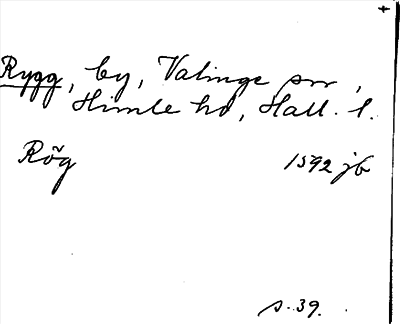 Rygg, by, Valinge sn,
Himle hd, Hall. l.
Rög 1592 jb
s. 39.